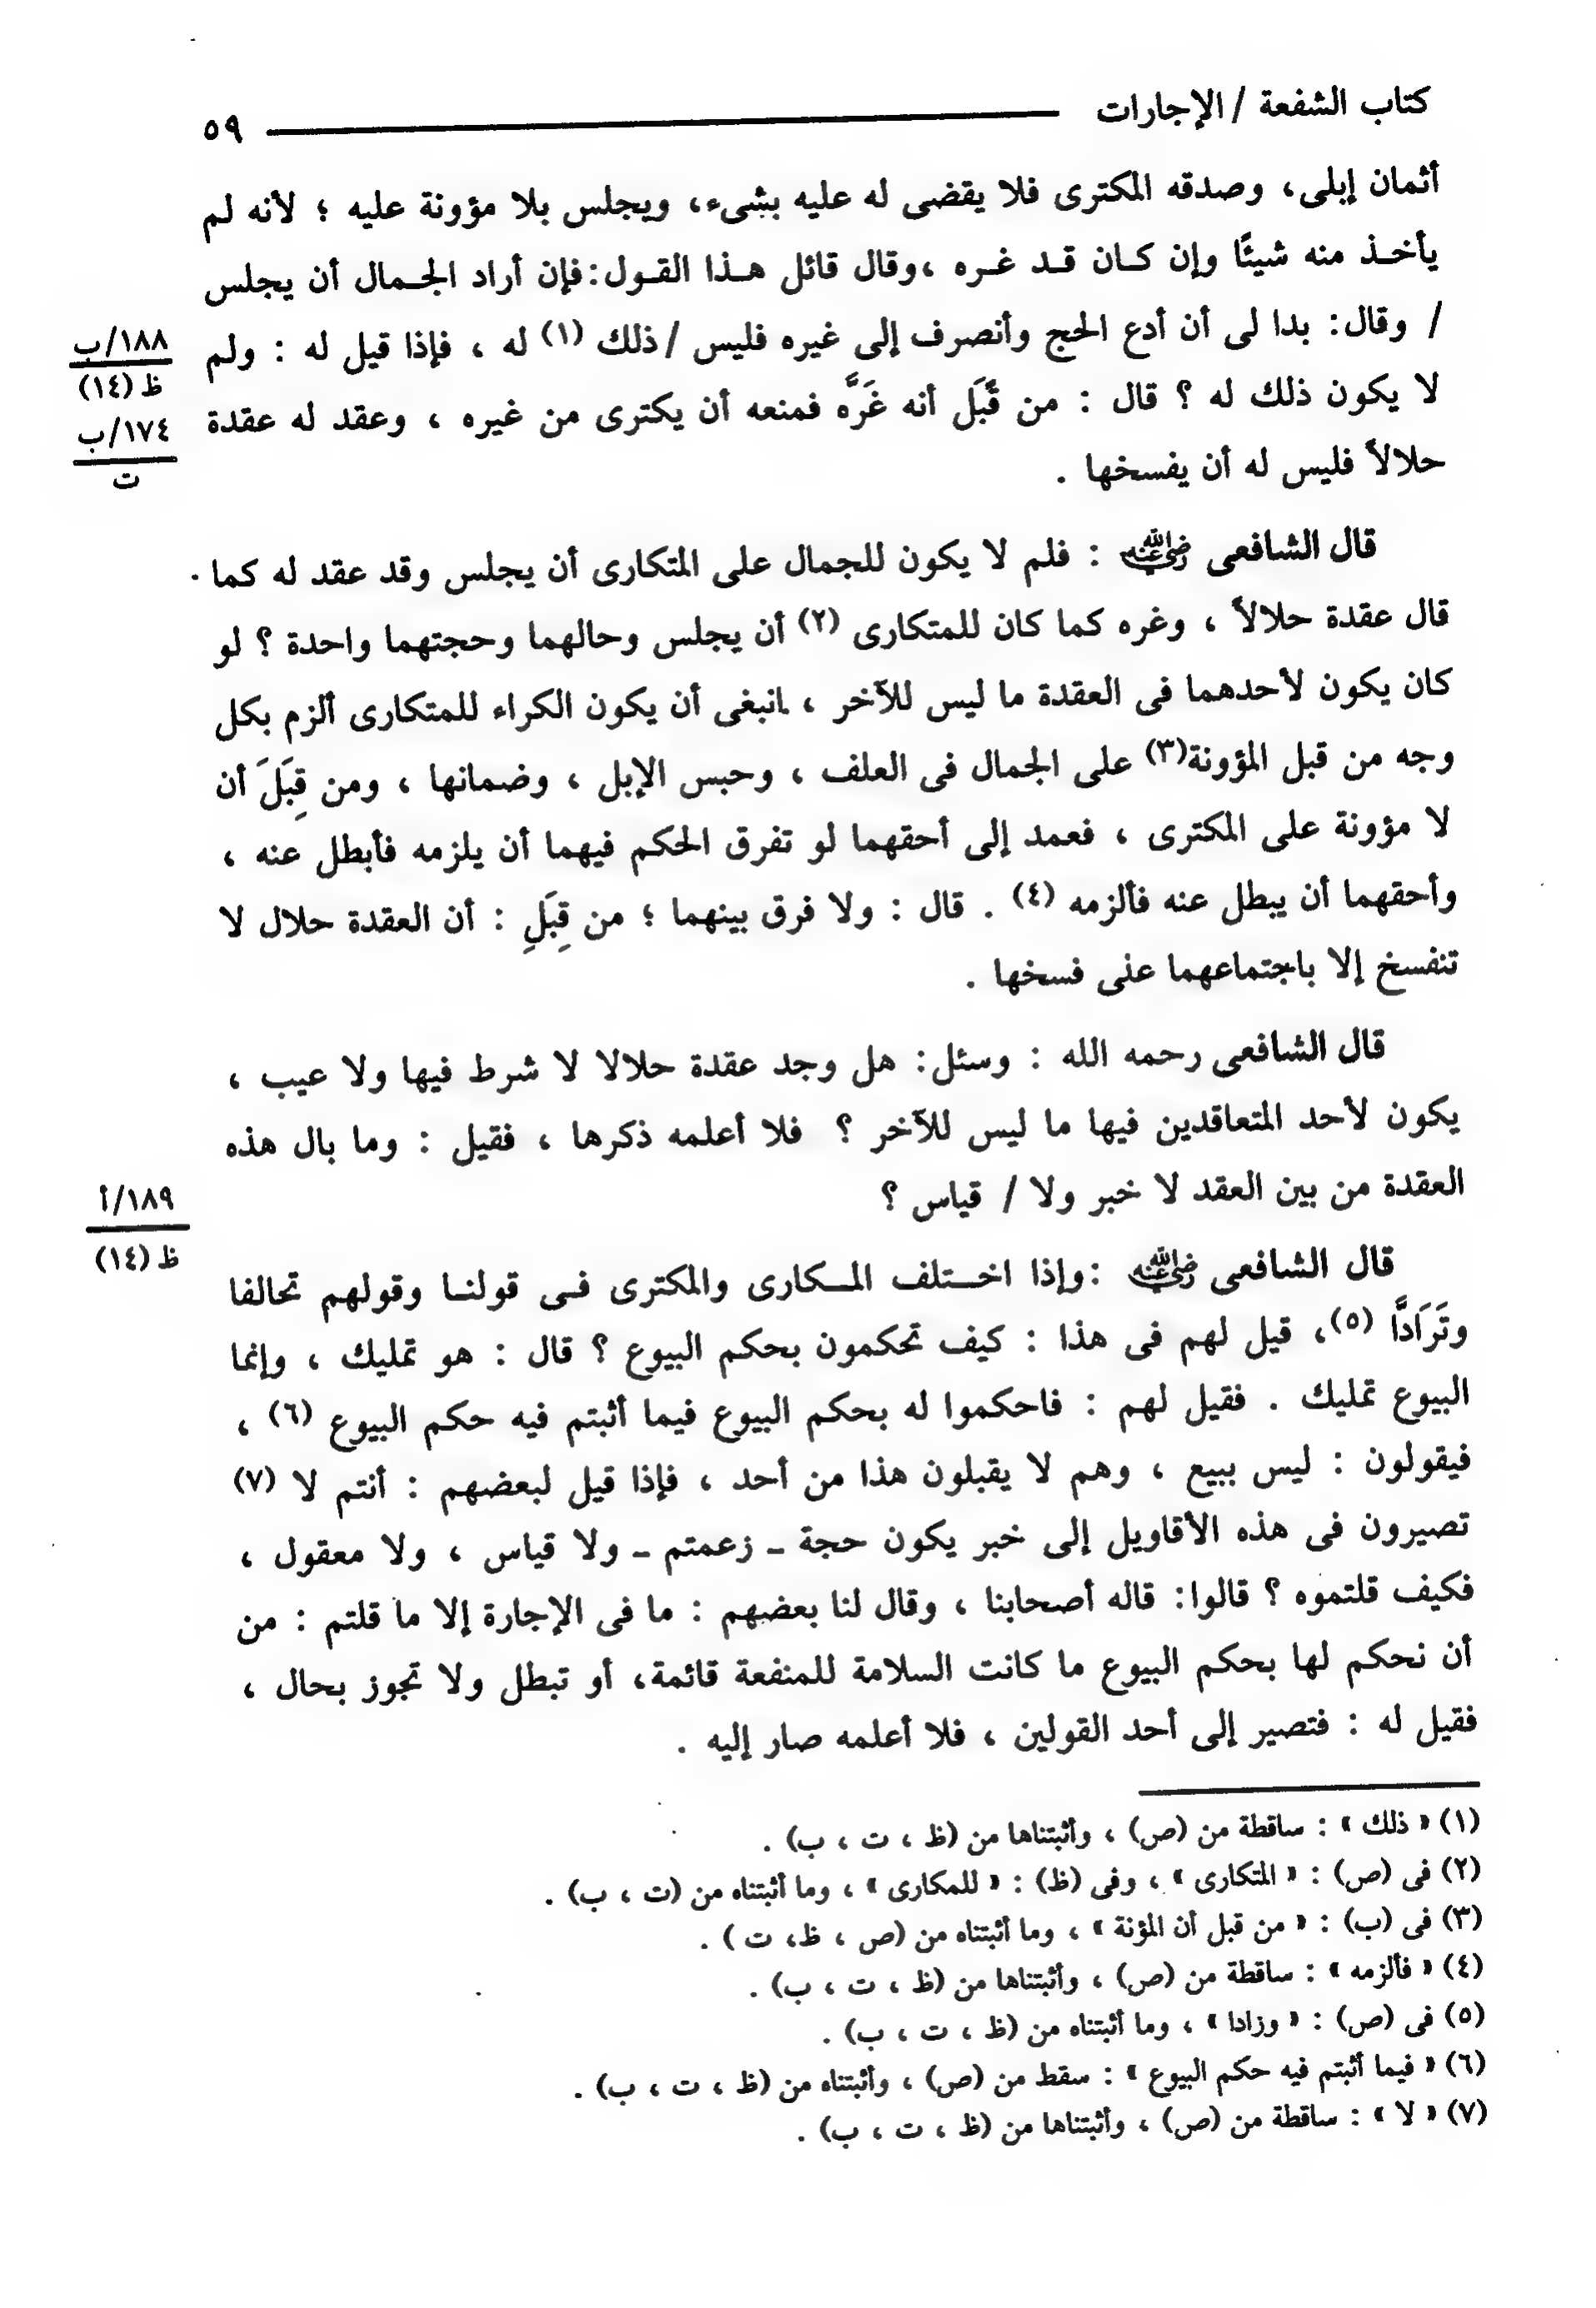 كتاب الشفعة / الإجارات ٥٩
أثمان إبلى، وصدقه المكترى فلا يقضى له عليه بشىء، ويجلس بلا مؤونة عليه ؛ لأنه لم
يأخذ منه شيئًا وإن كان قد غره ،وقال قائل هذا القول:فإن أراد الجمال أن يجلس
/ وقال: بدا لى أن أدع الحج وأنصرف إلى غيره فليس /ذلك (١) له ، فإذا قيل له : ولم
١٨٨/ب
ظ (١٤)
لا يكون ذلك له ؟ قال : من قَبَل أنه غَرَّه فمنعه أن يكترى من غيره ، وعقد له عقدة
١٧٤/ب
ت
حلالاً فليس له أن يفسخها .
قال الشافعى رضي الله عنه : فلم لا يكون للجمال على المتكارى أن يجلس وقد عقد له كما
قال عقدة حلالاً ، وغره كما كان للمتكارى (٢) أن يجلس وحالهما وحجتهما واحدة ؟ لو
كان يكون لأحدهما فى العقدة ما ليس للآخر ، انبغى أن يكون الكراء للمتكارى ألزم بكل
وجه من قبل المؤونة(٣) على الجمال فى العلف ، وحبس الإبل ، وضمانها ، ومن قِبَلَ أن
لا مؤونة على المكترى ، فعمد إلى أحقهما لو تفرق الحكم فيهما أن يلزمه فأبطل عنه ،
وأحقهما أن يبطل عنه فألزمه (٤) . قال : ولا فرق بينهما ؛ من قِبَلِ : أن العقدة حلال لا
تنفسخ إلا باجتماعهما على فسخها .
قال الشافعى رحمه الله : وسئل: هل وجد عقدة حلالا لا شرط فيها ولا عيب ،
يكون لأحد المتعاقدين فيها ما ليس للآخر ؟ فلا أعلمه ذكرها ، فقيل : وما بال هذه
العقدة من بين العقد لا خبر ولا / قياس ؟
١٨٩/أ
ظ (١٤)
قال الشافعى رضي الله عنه :وإذا اختلف المكارى والمكترى فى قولنا وقولهم تحالفا
وتَرَادًّا (٥)، قيل لهم فى هذا : كيف تحكمون بحكم البيوع ؟ قال : هو تمليك ، وإنما
البيوع تمليك . فقيل لهم : فاحكموا له بحكم البيوع فيما أثبتم فيه حكم البيوع (٦) ،
فيقولون : ليس ببيع ، وهم لا يقبلون هذا من أحد ، فإذا قيل لبعضهم : أنتم لا (٧)
تصيرون فى هذه الأقاويل إلى خبر يكون حجة ـ زعمتم ـ ولا قياس ، ولا معقول ،
فكيف قلتموه ؟ قالوا: قاله أصحابنا ، وقال لنا بعضهم : ما فى الإجارة إلا ما قلتم : من
أن نحكم لها بحكم البيوع ما كانت السلامة للمنفعة قائمة، أو تبطل ولا تجوز بحال ،
فقيل له : فتصير إلى أحد القولين ، فلا أعلمه صار إليه .
(١) « ذلك » : ساقطة من (ص) ، وأثبتناها من (ظ ، ت ، ب) .
(٢) فى (ص) : « المتكارى » ، وفى (ظ) : « للمكارى » ، وما أثبتناه من (ت ، ب) .
(٣) فى (ب) : « من قبل أن المؤنة » ، وما أثبتناه من (ص ، ظ، ت ) .
(٤) « فألزمه » : ساقطة من (ص) ، وأثبتناها من (ظ ، ت ، ب) .
(٥) فى (ص) : « وزادا » ، وما أثبتناه من (ظ ، ت ، ب) .
(٦) « فيما أثبتم فيه حكم البيوع » : سقط من (ص) ، وأثبتناه من (ظ ، ت ، ب) .
(٧) « لا » : ساقطة من (ص) ، وأثبتناها من (ظ ، ت ، ب) .